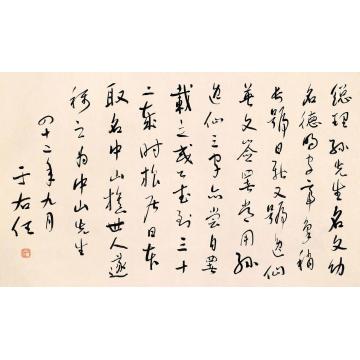 總理孫先生名文幼
名德明字帝象稍
長號日新又號逸仙
英文簽署常用孫
逸仙三字亦嘗自署
載之或公武到三十
二歲時旅居日本
取名中山樵世人遂
稱之為中山先生
四十二年九月
于右任